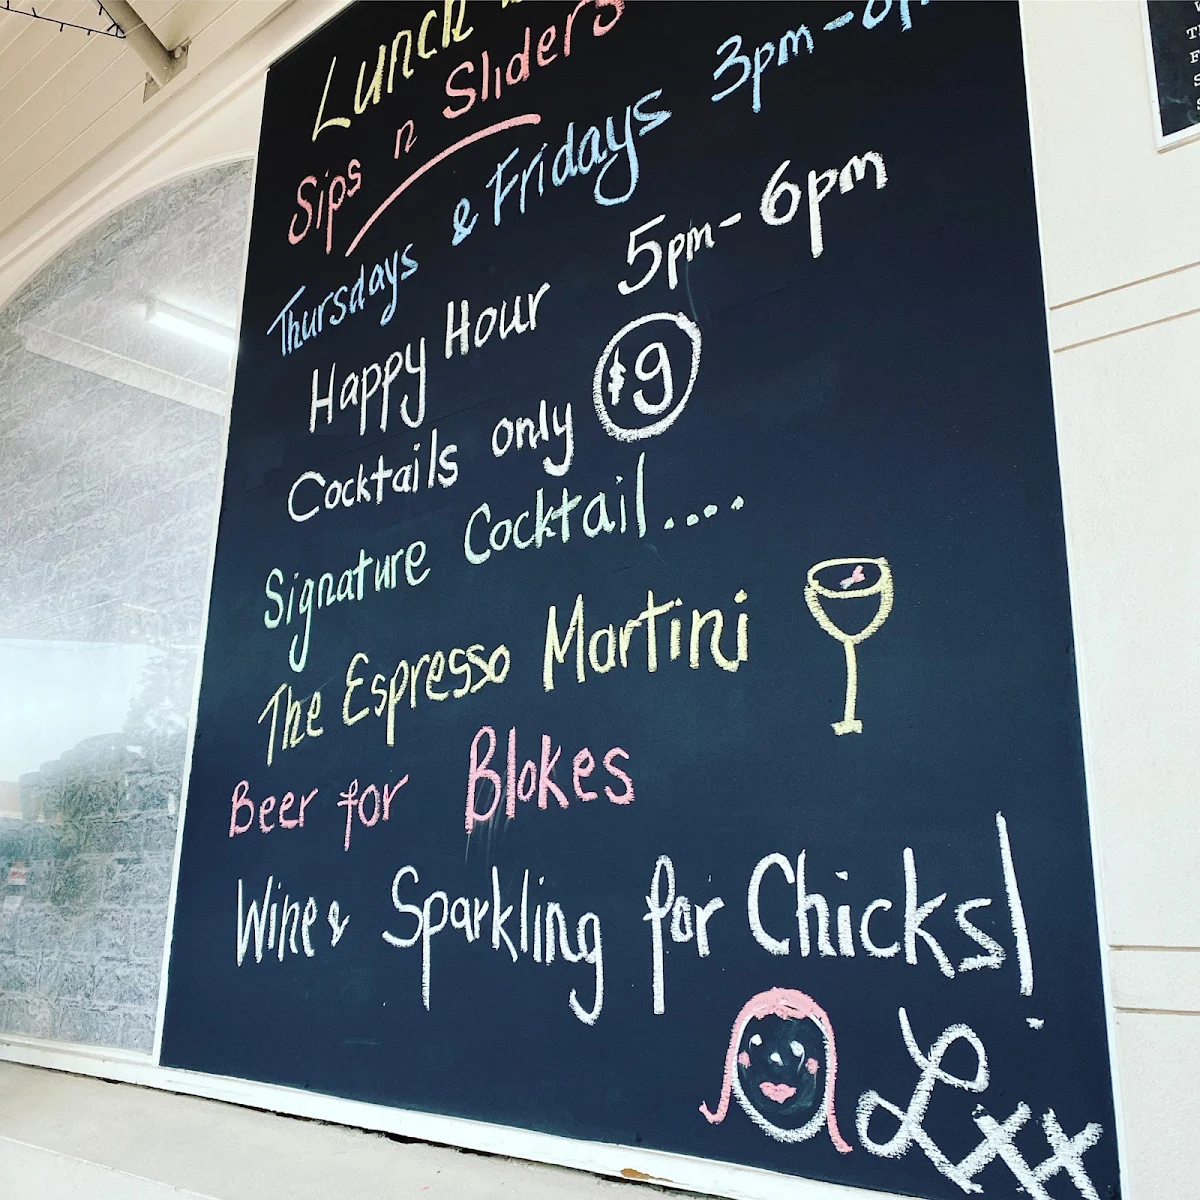 Lunch
Sips n Sliders
Thursdays & Fridays 3pm-6p
Happy Hour 5pm-6pm
Cocktails only $9
Signature Cocktail....
The Espresso Martini
Beer for Blokes
Wine & Sparkling for Chicks!
Lxx